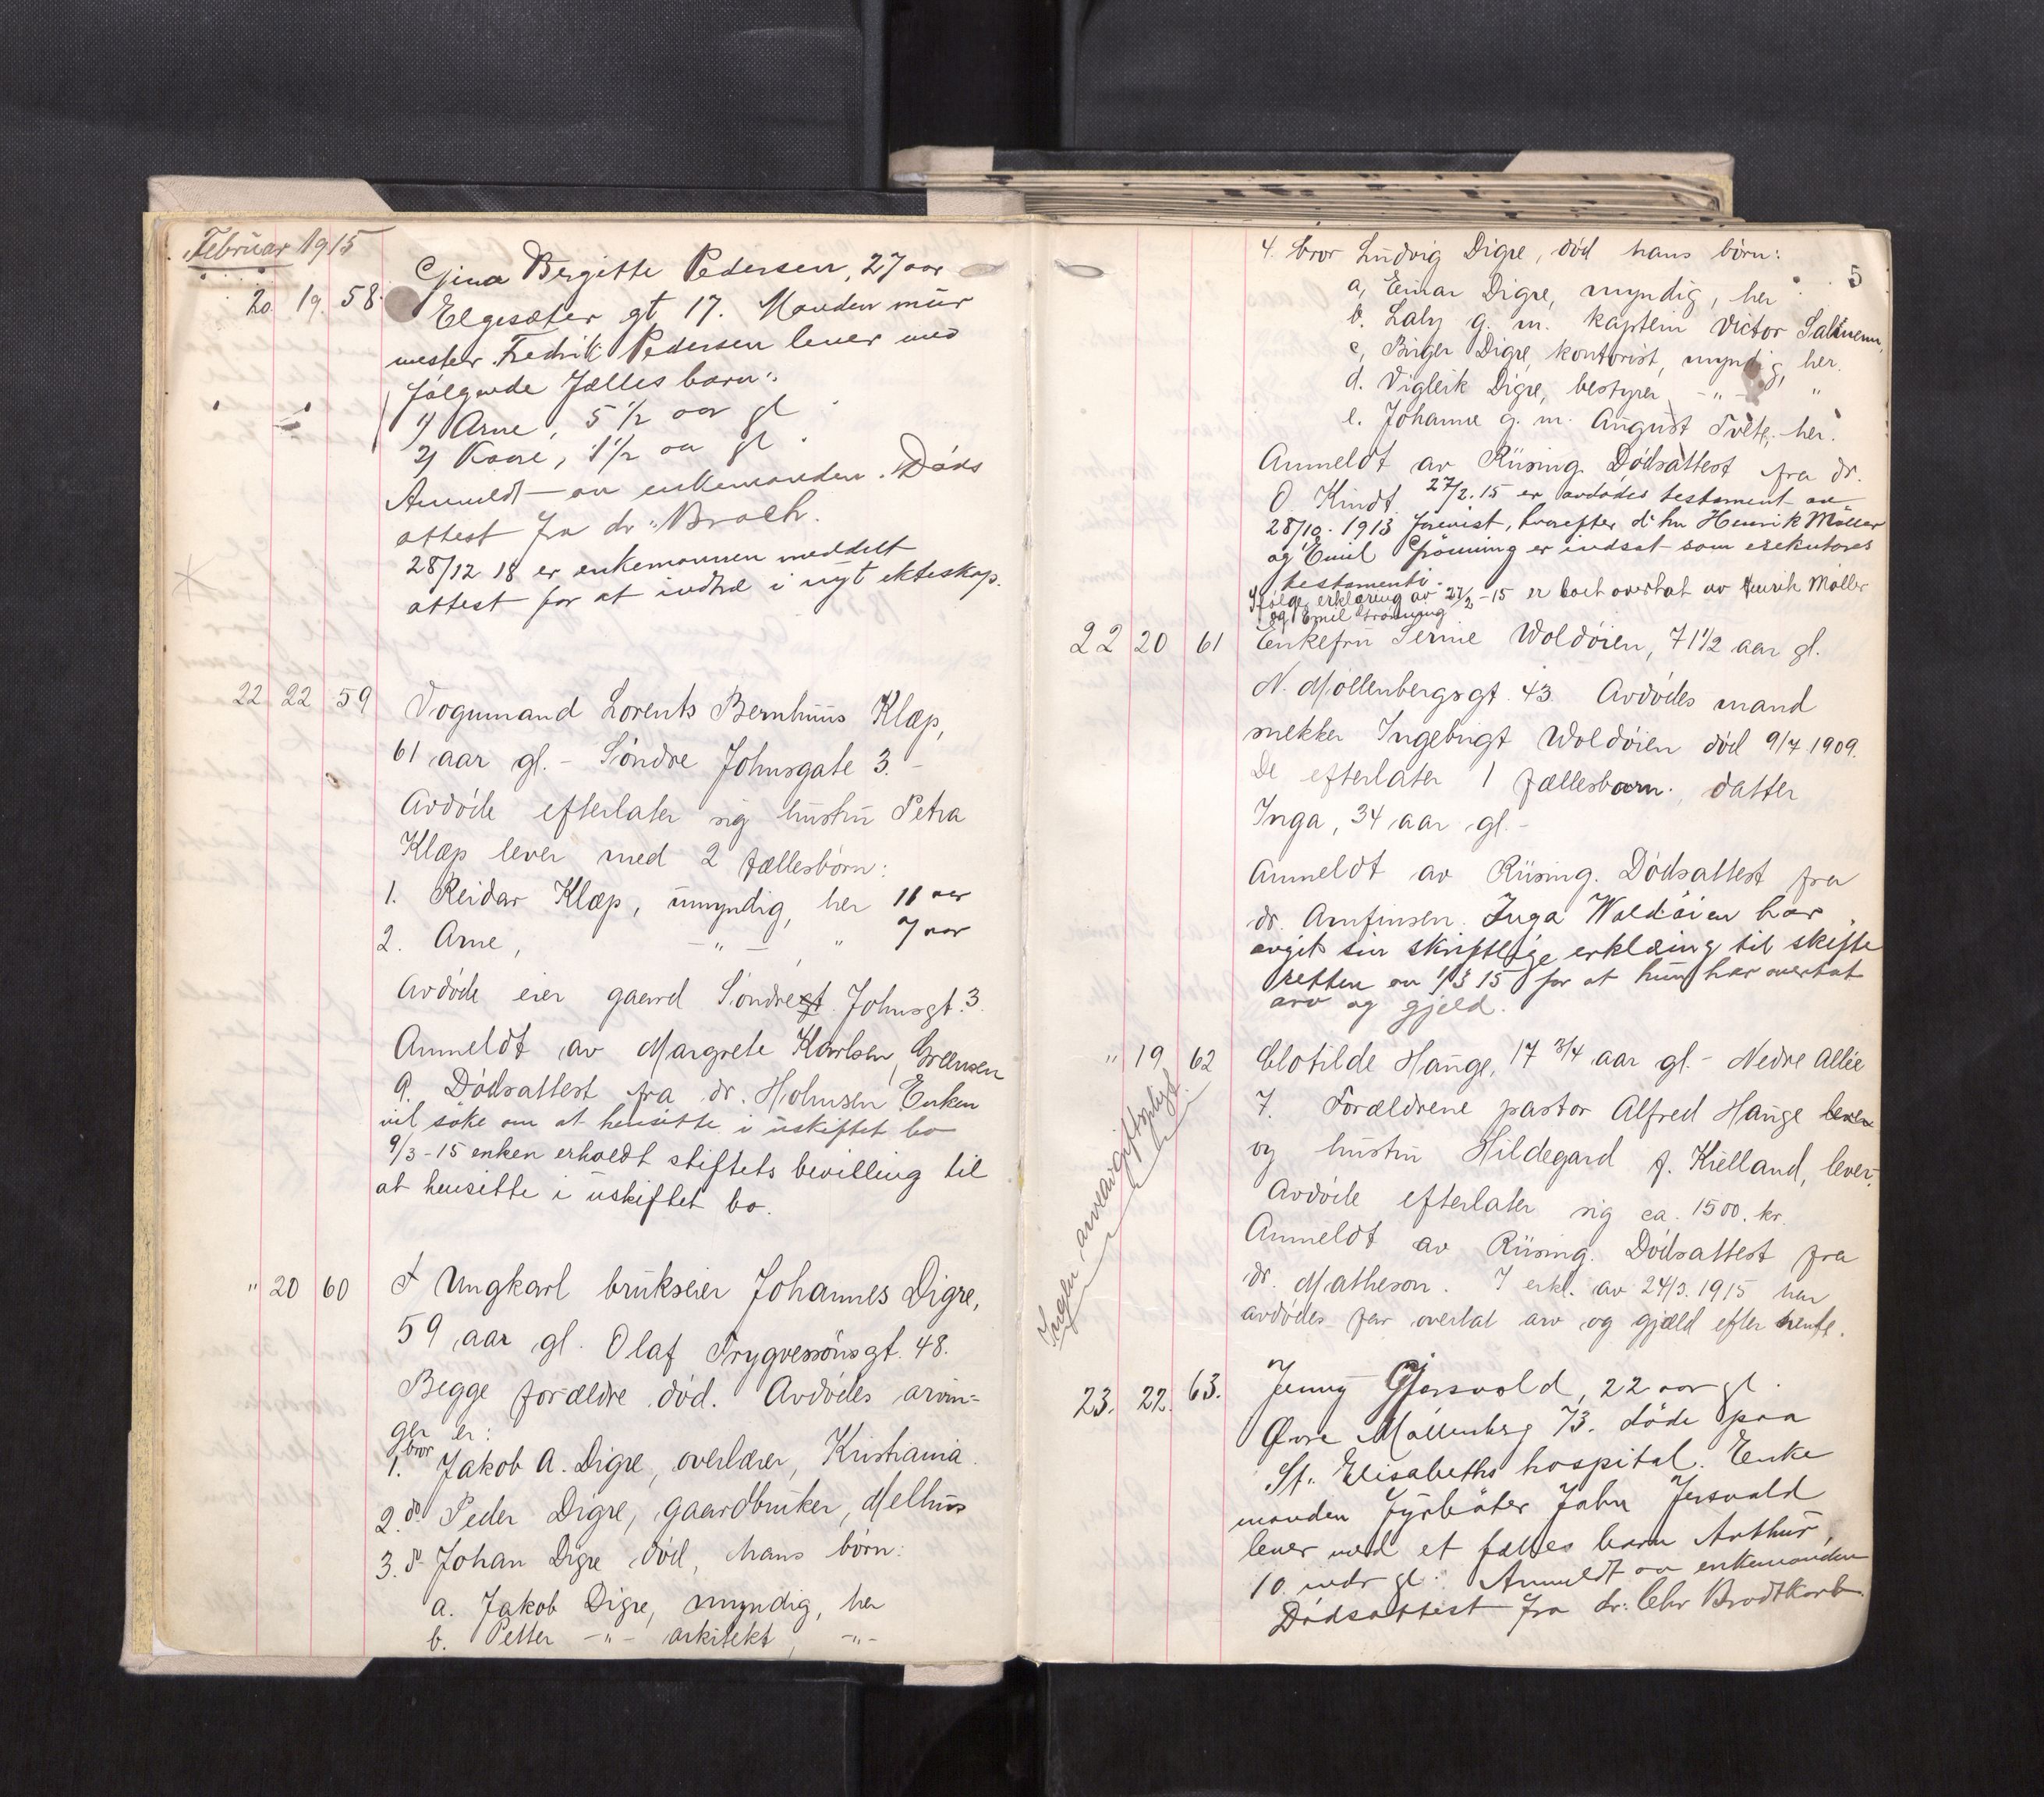 Februar 1915
20. 19. 58. Gina Bergitte Pedersen, 27 aar
Elgesæter gt 17. Manden mür
mester Fredrik Pedersen lever med
følgende fælles barn:
1) Arne, 5 1/2 aar gl
2) Kaare, 1 1/2 aar gl
Anmeldt av enkemanden. Døds
attest fra dr. Broch.
28/12 18 er enkemannen meddelt
attest for at indtræ i nyt ekteskap.
22 22 59 Vognmand Lorents Bernhüus Klæp,
61 aar gl. - Söndre Johnsgate 3. -
Avdöde efterlater sig hüstrü Petra
Klæp lever med 2 fællesbörn:
1. Reidar Klæp, ümyndig, her 11 aar
2. Arne, - " - , " 7 aar
Avdöde eier gaard Söndregt. Johnsgt. 3.
Anmeldt av Margrete Karlsen, Grensen
9. Dödsattest fra dr. Holmsen Enken
vil söke om at hensitte i üskiftet bo
9/3-15 enken erholdt stiftets bevilling til
at hensitte i üskiftet bo.
" 20 60 Ungkarl brükseier Johannes Digre,
59 aar gl. Olaf Trygvessönsgt. 48.
Begge forældre död. Avdödes arvin=
ger er:
1. bror Jakob A. Digre, overlærer, Kristiania.
2. do Peder Digre, gaardbrüker, Melhüs
3. do Johan Digre död, hans börn:
a. Jakob Digre, myndig, her
b. Petter - " - arkitekt, - " -
5
4. bror Lüdvig Digre, död hans börn:
a, Einar Digre, myndig, her
b. Laly g. m. kaptein Victor
c, Birger Digre, kontorist, myndig, her.
d. Vigleik Digre, bestyrer - " - "
e. Johanne g. m. Aügüst Tvete, her.
Anmeldt av Rüsing. Dödsattest fra dr.
O Kindt. 27/2. 15 er avdødes testament av
28/10. 1913 forevist, hvorefter d'hrr Henrik Möller
og Emil er indsat som exekutores
testamenti.
Ifölge erklæring av 27/2-15 er boet overtat av Henrik Möller
og Emil
22 20 61 Enkefrü Serine Woldöien, 71 1/2 aar gl.
N. Möllenbergsgt. 43. Avdödes mand
snekker Ingebrigt Woldöien död 9/7 1909.
De efterlater 1 fællesbarn. datter
Inga, 34 aar gl. -
Anmeldt av Rüsing. Dödsattest fra
dr. Arnfinsen. Inga Waldöien har
avgit sin skriftlige erklæring til skifte
retten av 1/3 15 for at hün har overtat
arv og gjeld.
" 19 62 Clotilde Haüge, 17 3/4 aar gl. - Nedre Allée
7. Forældrene pastor Alfred Haüge lever
og hüstrü Hildegard f. Kielland, lever.
Avdöde efterlater sig ca. 1500. kr.
Anmeldt av Rüsing. Dödsattest fra
dr. Matheson. I erkl. av 24/3. 1915 har
avdödes far overtat arv og gjæld efter hende.
Ingen arveavgiftspligt.
23. 22. 63. Jenny Gjersvold, 22 aar gl.
Øvre Möllenberg 73. döde paa
St. Elisabeths hospital. Enke
manden fyrböter Jahn Jersvold
lever med et fælles barn Arthür,
10 mdr gl. Anmeldt av enkemanden
Dødsattest fra dr: Chr Brodtkorb.